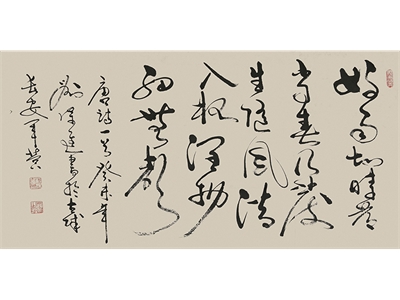 好雨知時節
當春乃發
生隨風潛
入夜潤物
細無聲
唐詩一首癸未年
書於古城
長安軍營